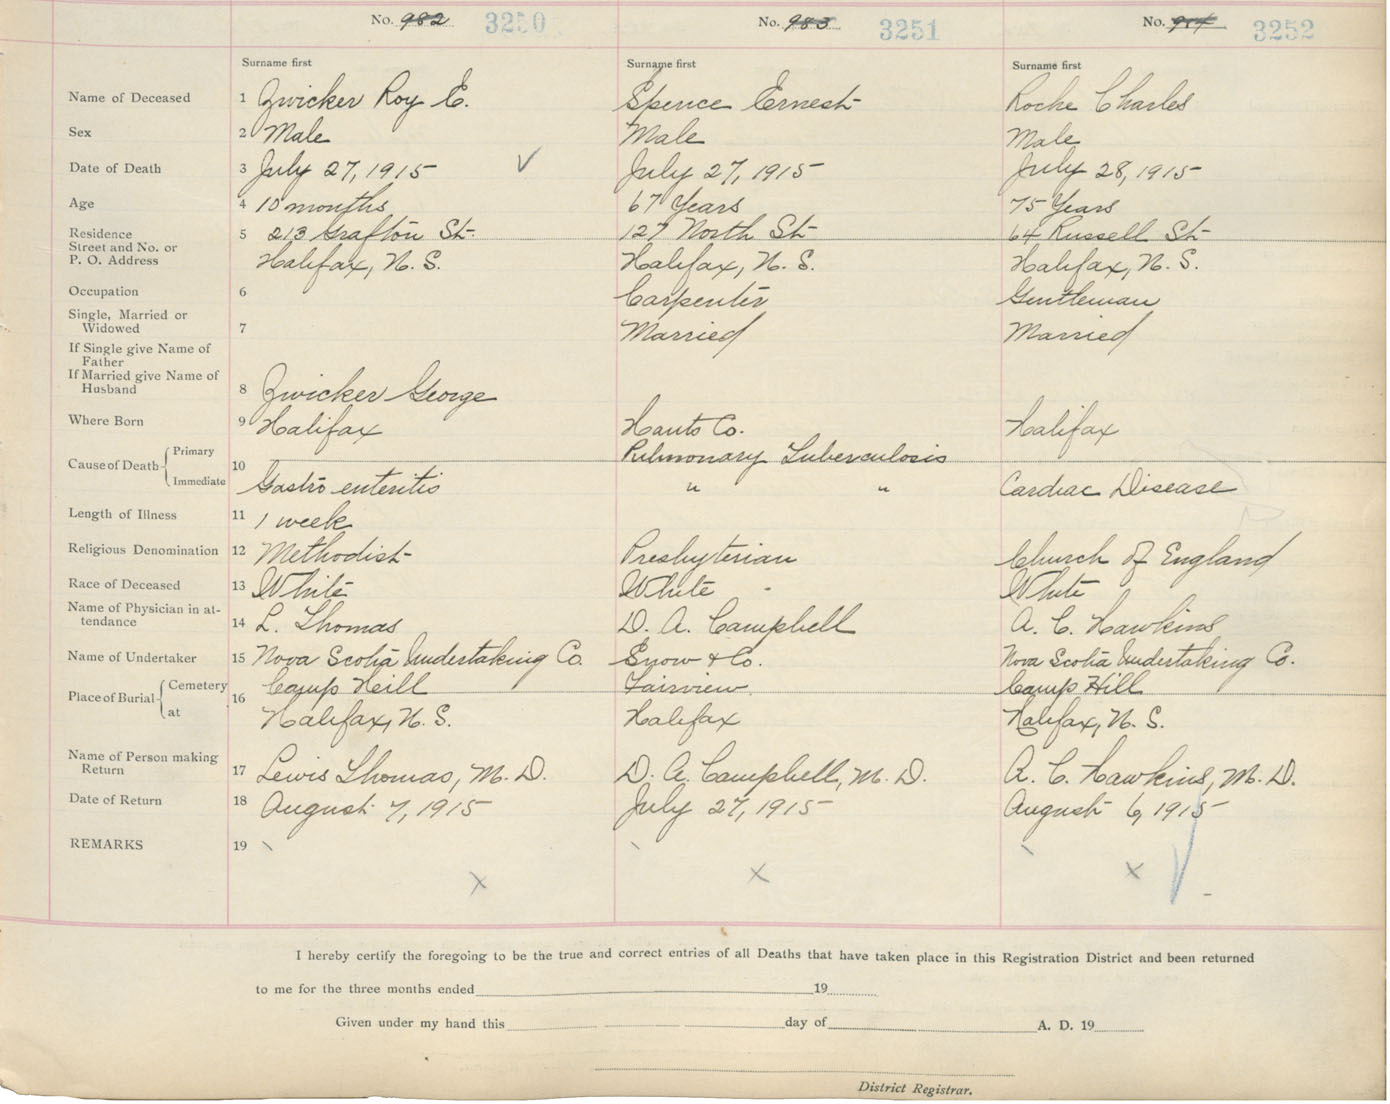 No. 982 3250 No. 983 3251 No. 984 3252
Surname first Surname first Surname first
Name of Deceased 1 Zwicker Roy E. Spence Ernest Roche Charles
Sex 2 Male Male Male
Date of Death 3 July 27, 1915 July 27, 1915 July 28, 1915
Age 4 10 months 67 Years 75 Years
Residence 5 213 Grafton St. 127 North St 64 Russell St
Street and No. or
P. O. Address Halifax, N. S. Halifax, N. S. Halifax, N. S.
Occupation 6 Carpenter Gentleman
Single, Married or
Widowed 7 Married Married
If Single give Name of
Father
If Married give Name of
Husband 8 Zwicker George
Where Born 9 Halifax Hants Co. Halifax
Cause of Death 10
Primary Pulmonary Tuberculosis
Immediate Gastro enteritis " " Cardiac Disease
Length of Illness 11 1 week
Religious Denomination 12 Methodist Presbyterian Church of England
Race of Deceased 13 White White White
Name of Physician in at-
tendance 14 L. Thomas D. A. Campbell A. C. Hawkins
Name of Undertaker 15 Nova Scotia Undertaking Co. Snow & Co. Nova Scotia Undertaking Co.
Place of Burial 16
Cemetery Camp Heill Fairview Camp Hill
at Halifax, N. S. Halifax Halifax, N. S.
Name of Person making
Return 17 Lewis Thomas, M. D. D. A. Campbell, M. D. A. C. Hawkins, M. D.
Date of Return 18 August 7, 1915 July 27, 1915 August 6, 1915
REMARKS 19
x x x
I hereby certify the foregoing to be the true and correct entries of all Deaths that have taken place in this Registration District and been returned
to me for the three months ended 19
Given under my hand this day of A. D. 19
District Registrar.